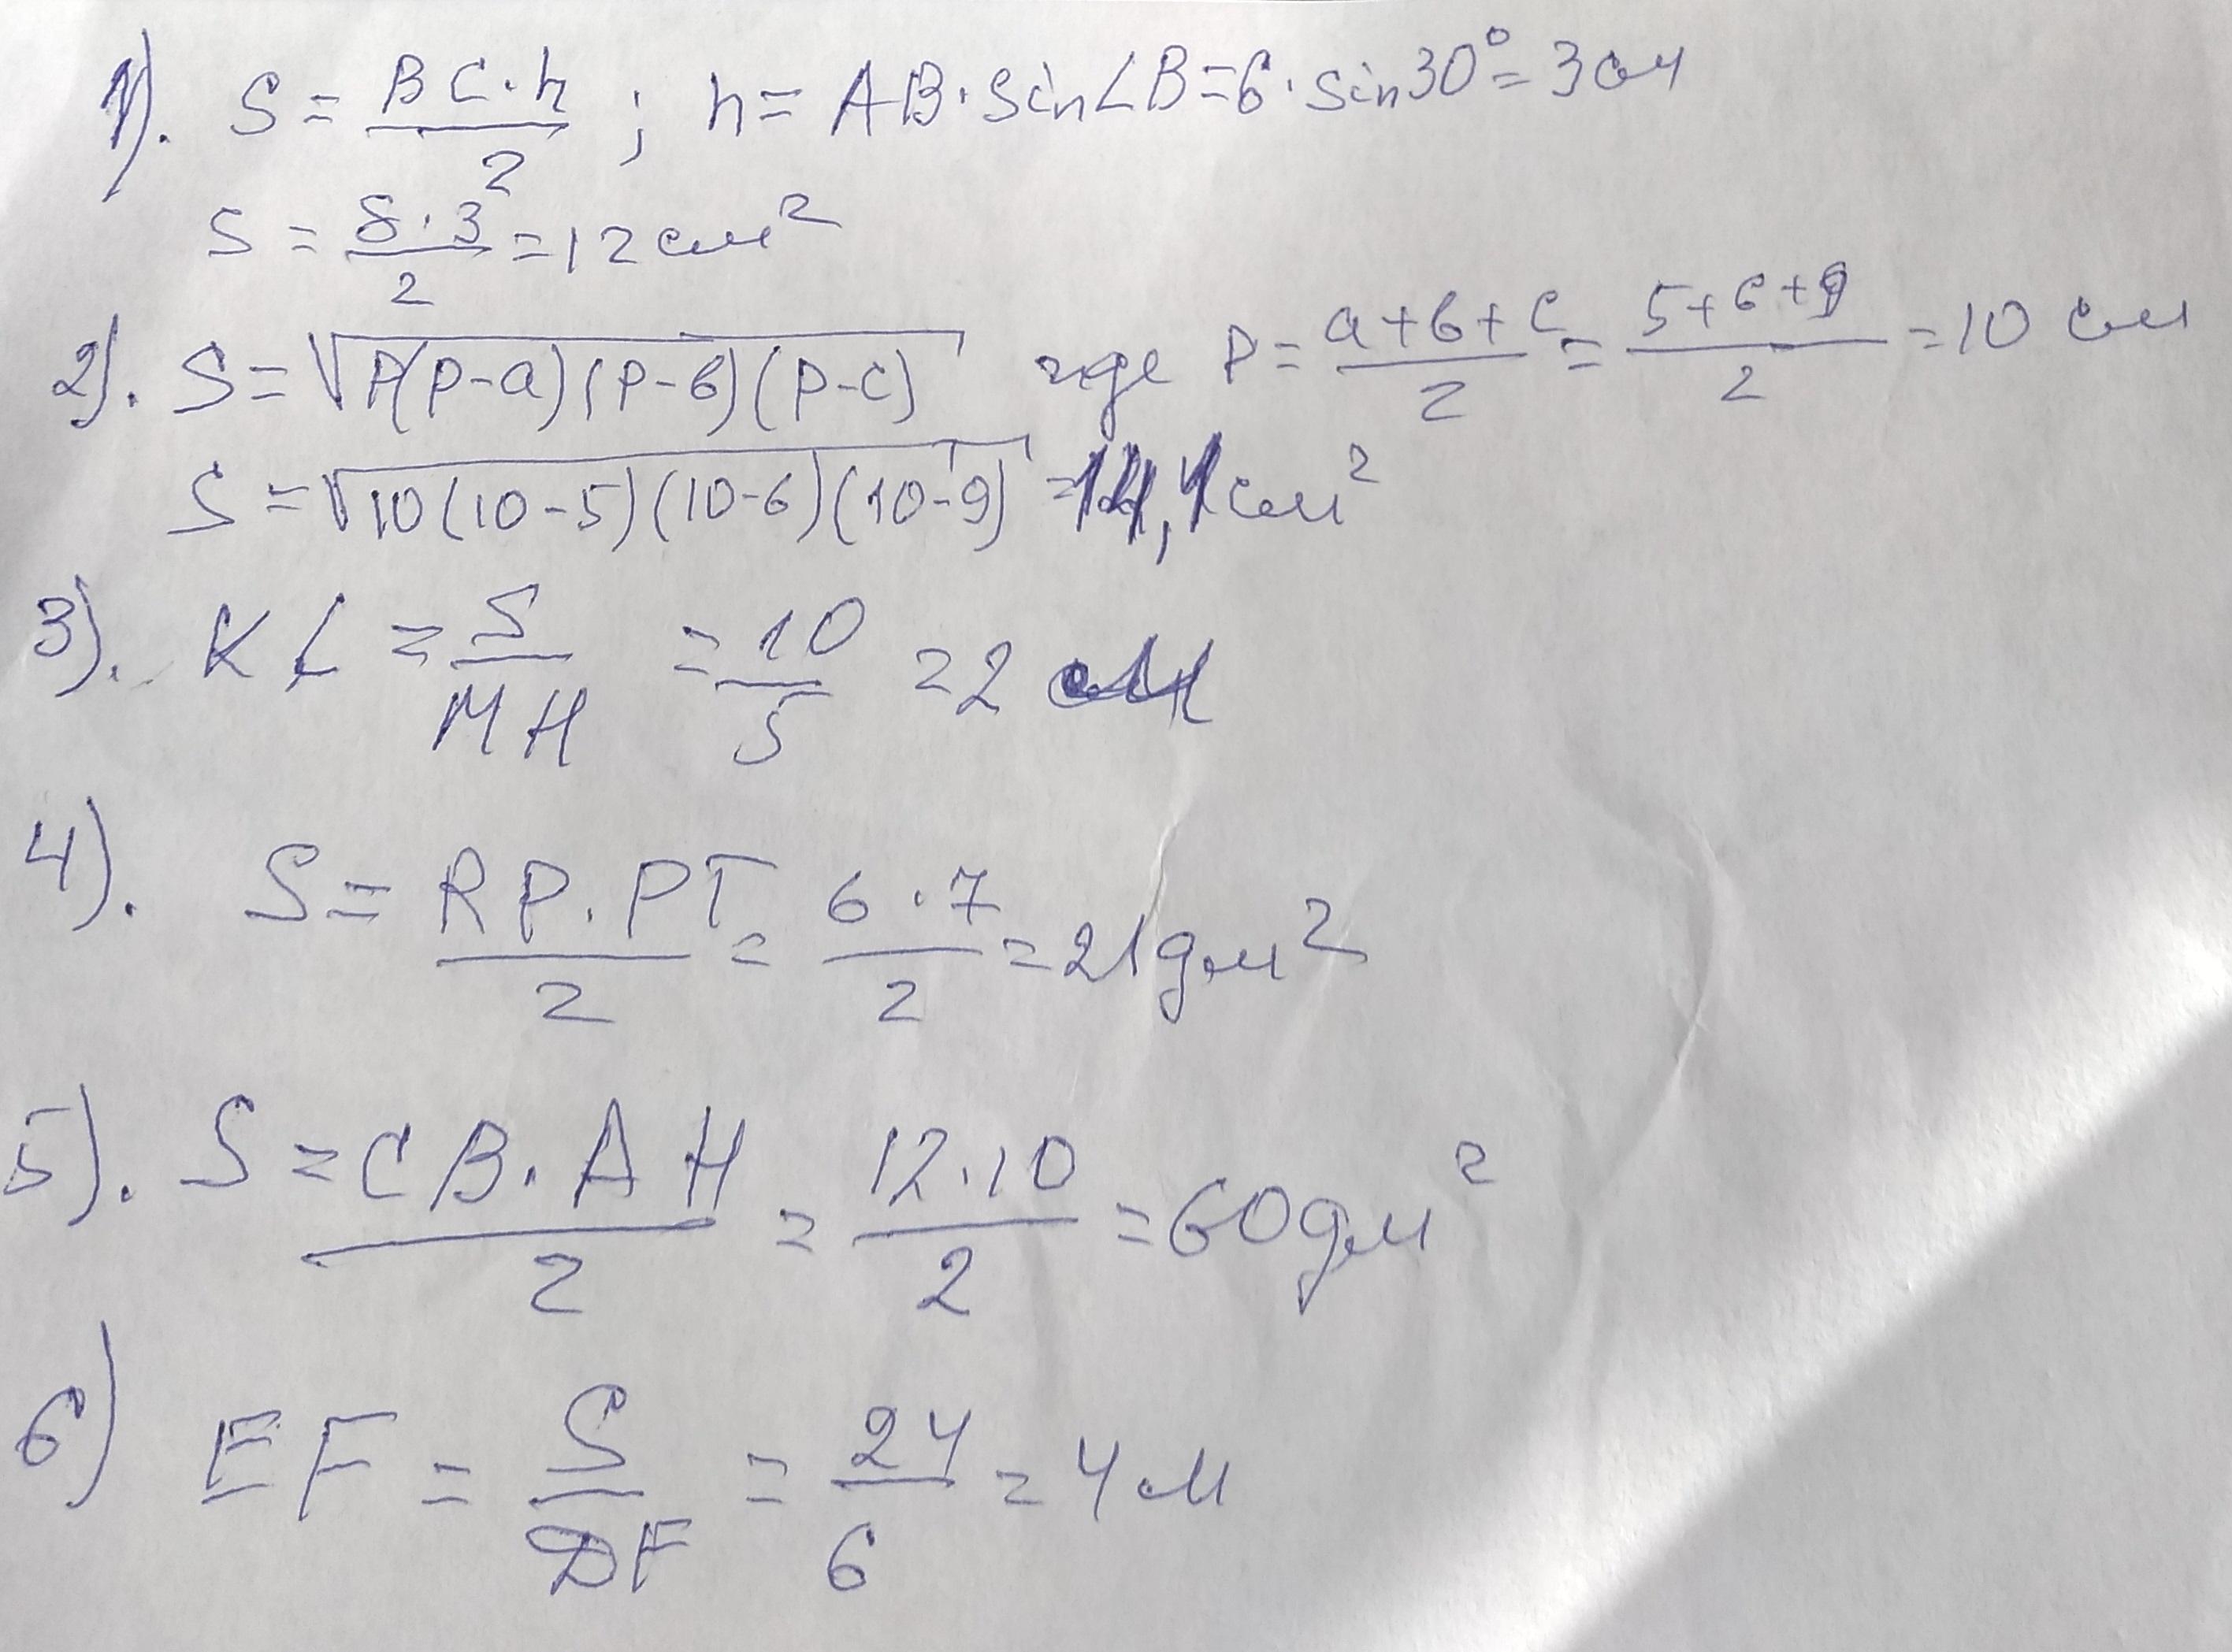 1). S = BC·h / 2 ; h = AB·sin∠B = 6·sin30° = 3 см
S = 8·3 / 2 = 12 см²
2). S = √P(P-a)(P-b)(P-c) где P = a+b+c / 2 = 5+6+9 / 2 = 10 см
S = √10(10-5)(10-6)(10-9) = 14,1 см²
3). KL = S / MH = 10 / 5 = 2 см
4). S = RP·PT / 2 = 6·7 / 2 = 21 дм²
5). S = CB·AH / 2 = 12·10 / 2 = 60 дм²
6) EF = S / DF = 24 / 6 = 4 м